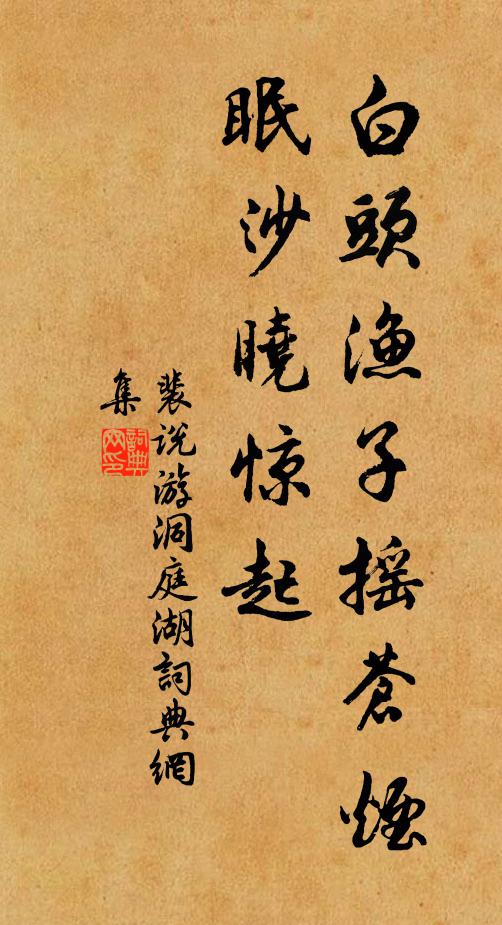 白頭漁子搖蒼煙
眠沙曉惊起
裴说游洞庭湖詞典網
集
詞典
网印